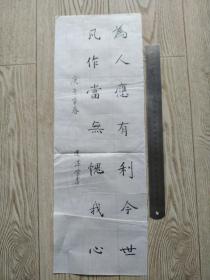 為人應有利今世
凡作當無愧我心